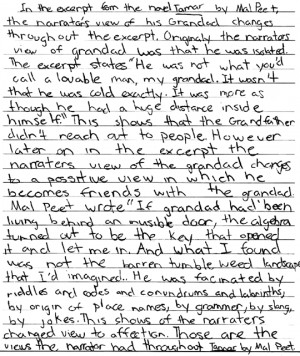 In the excerpt from the novel Tamar by Mal Peet,
the narrator's view of his Grandad changes
throughout the excerpt. Originaly the narrators
view of grandad was that he was isolated.
The excerpt states "He was not what you'd
call a lovable man, my grandad. It wasn't
that he was cold exactly. It was more as
though he had a huge distance inside
himself" This shows that the Grandfather
didn't reach out to people. However
later on in the excerpt the
narraters view of the grandad changes
to a possitive view in which he
becomes friends with the grandad.
Mal Peet wrote "If grandad had been
living behind an invsible door, the algebra
turned out to be the key that opened
it and let me in. And what I found
was not the barren tumble weed landscape
that I'd imagined.. He was facinated by
riddles and codes and conundrums and labirinths,
by origin of place names, by grammer, by slang,
by jokes. This shows of the narraters
changed view to affection. Those are the
views the narrator had throughout Tamar by Mal Peet.